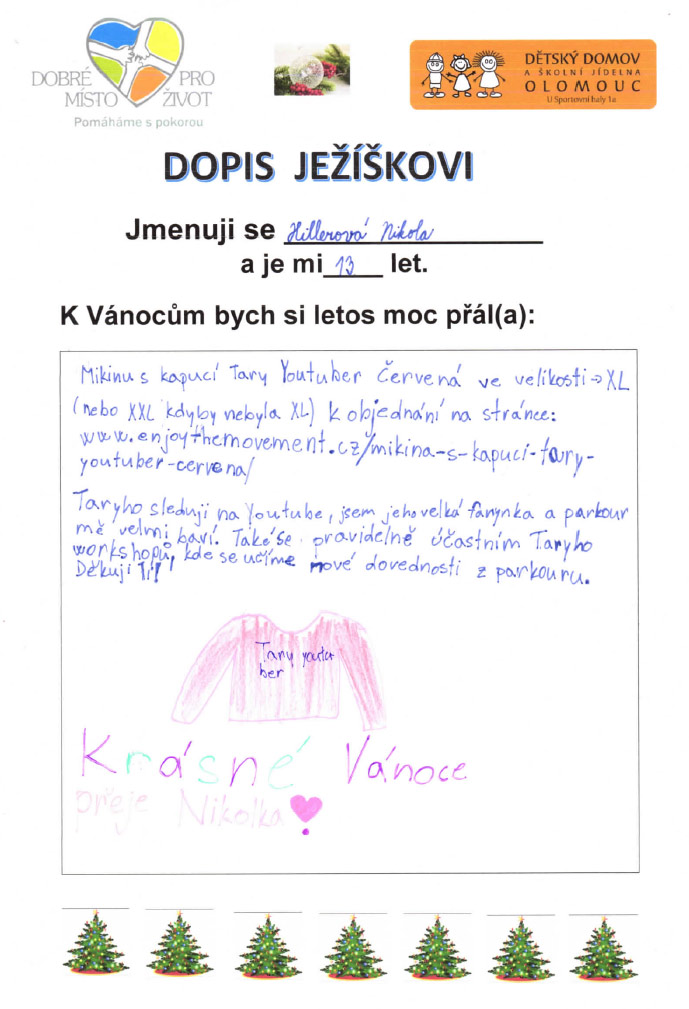 DOBRÉ PRO
MÍSTO ŽIVOT
Pomáháme s pokorou
DĚTSKÝ DOMOV
A ŠKOLNÍ JÍDELNA
OLOMOUC
U Sportovní haly 1a
DOPIS JEŽÍŠKOVI
Jmenuji se Hillerová Nikola
a je mi 13 let.
K Vánocům bych si letos moc přál(a):
Mikinu s kapucí Tary Youtuber Červená ve velikosti → XL
(nebo XXL kdyby nebyla XL) k objednání na stránce:
www.enjoythemovement.cz/mikina-s-kapuci-tary-
youtuber-cervena/
Taryho sleduji na Youtube, jsem jeho velká fanynka a parkour
mě velmi baví. Také se pravidelně účastním Taryho
workshopů, kde se učíme nové dovednosti z parkouru.
Děkuji Ti!
Tary youtu
ber
Krásné Vánoce
přeje Nikolka